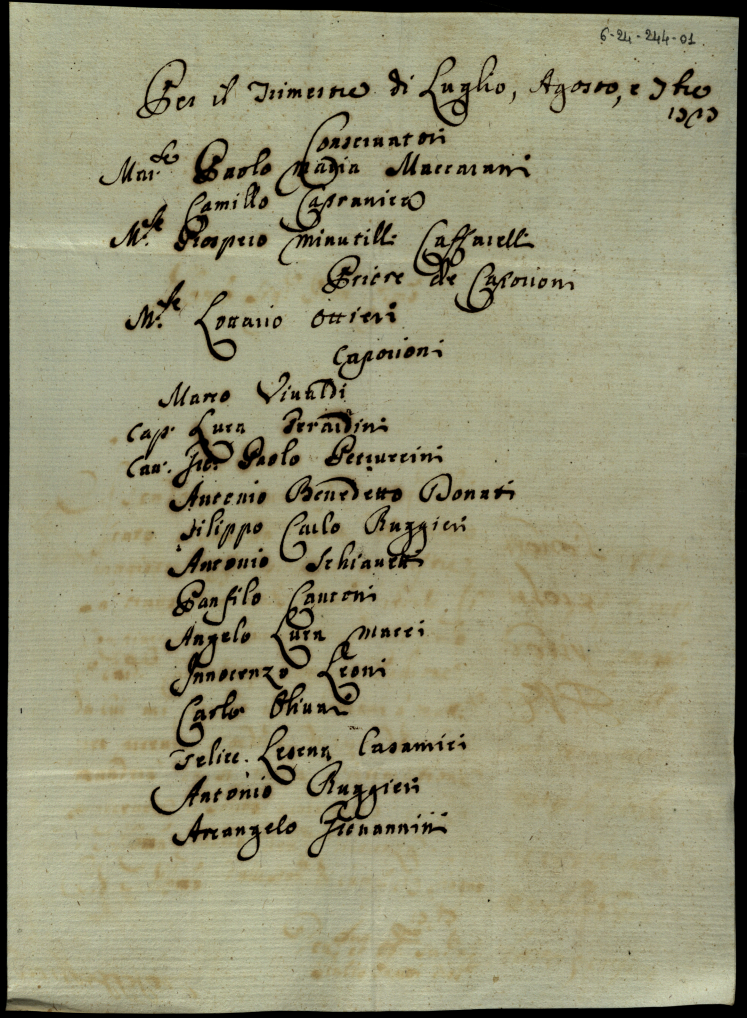 6-24-244-01
Per il Trimestre di Luglio, Agosto, e 7bre
Conservatori
Mar.se Paolo Maria Maccarani
Camillo Capranica
M.se Prospero Minutilli Caffarelli
Priore de Caporioni
M.se Lottario Ottieri
Caporioni
Marco Vivaldi
Cap. Luca Berardini
Cav. Gio. Paolo Petruccini
Antonio Benedetto Donati
Filippo Carlo Ruggieri
Antonio Schiavetti
Panfilo Cantoni
Angelo Luca Macci
Innocenzo Leoni
Carlo
Felice Casamici
Antonio Ruggieri
Arcangelo Giovannini